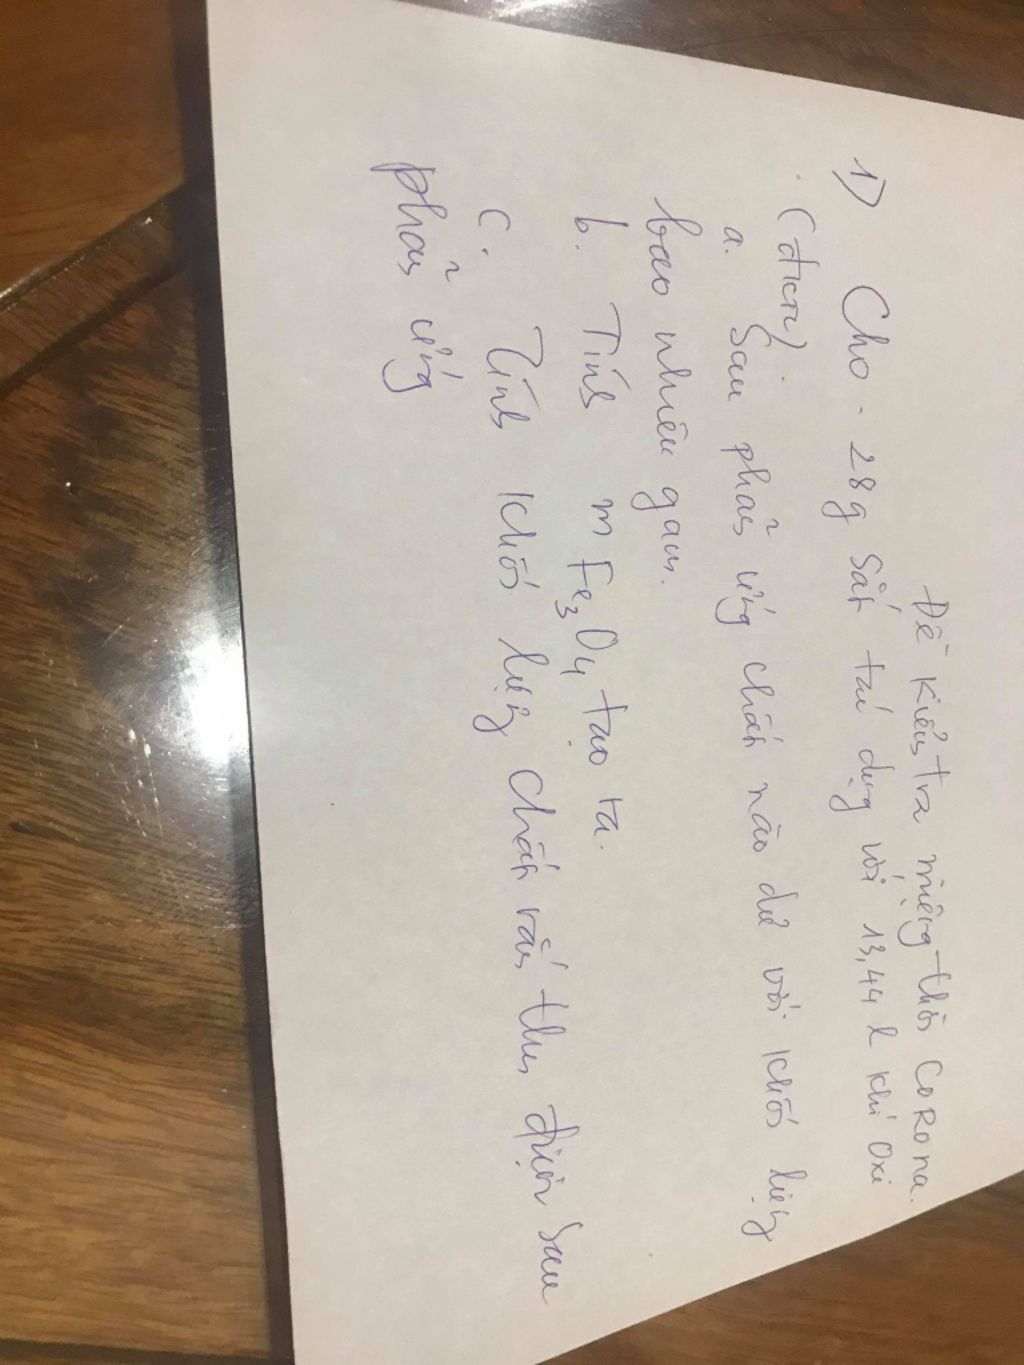 Đề kiểm tra miệng thời CoRona.
1) Cho 28g Sắt tác dụng với 13,44 l khí Oxi
(đktc).
a. Sau phản ứng chất nào dư với khối lượng
bao nhiêu gam.
b. Tính m Fe3O4 tạo ra.
c. Tính khối lượng chất rắn thu được sau
phản ứng